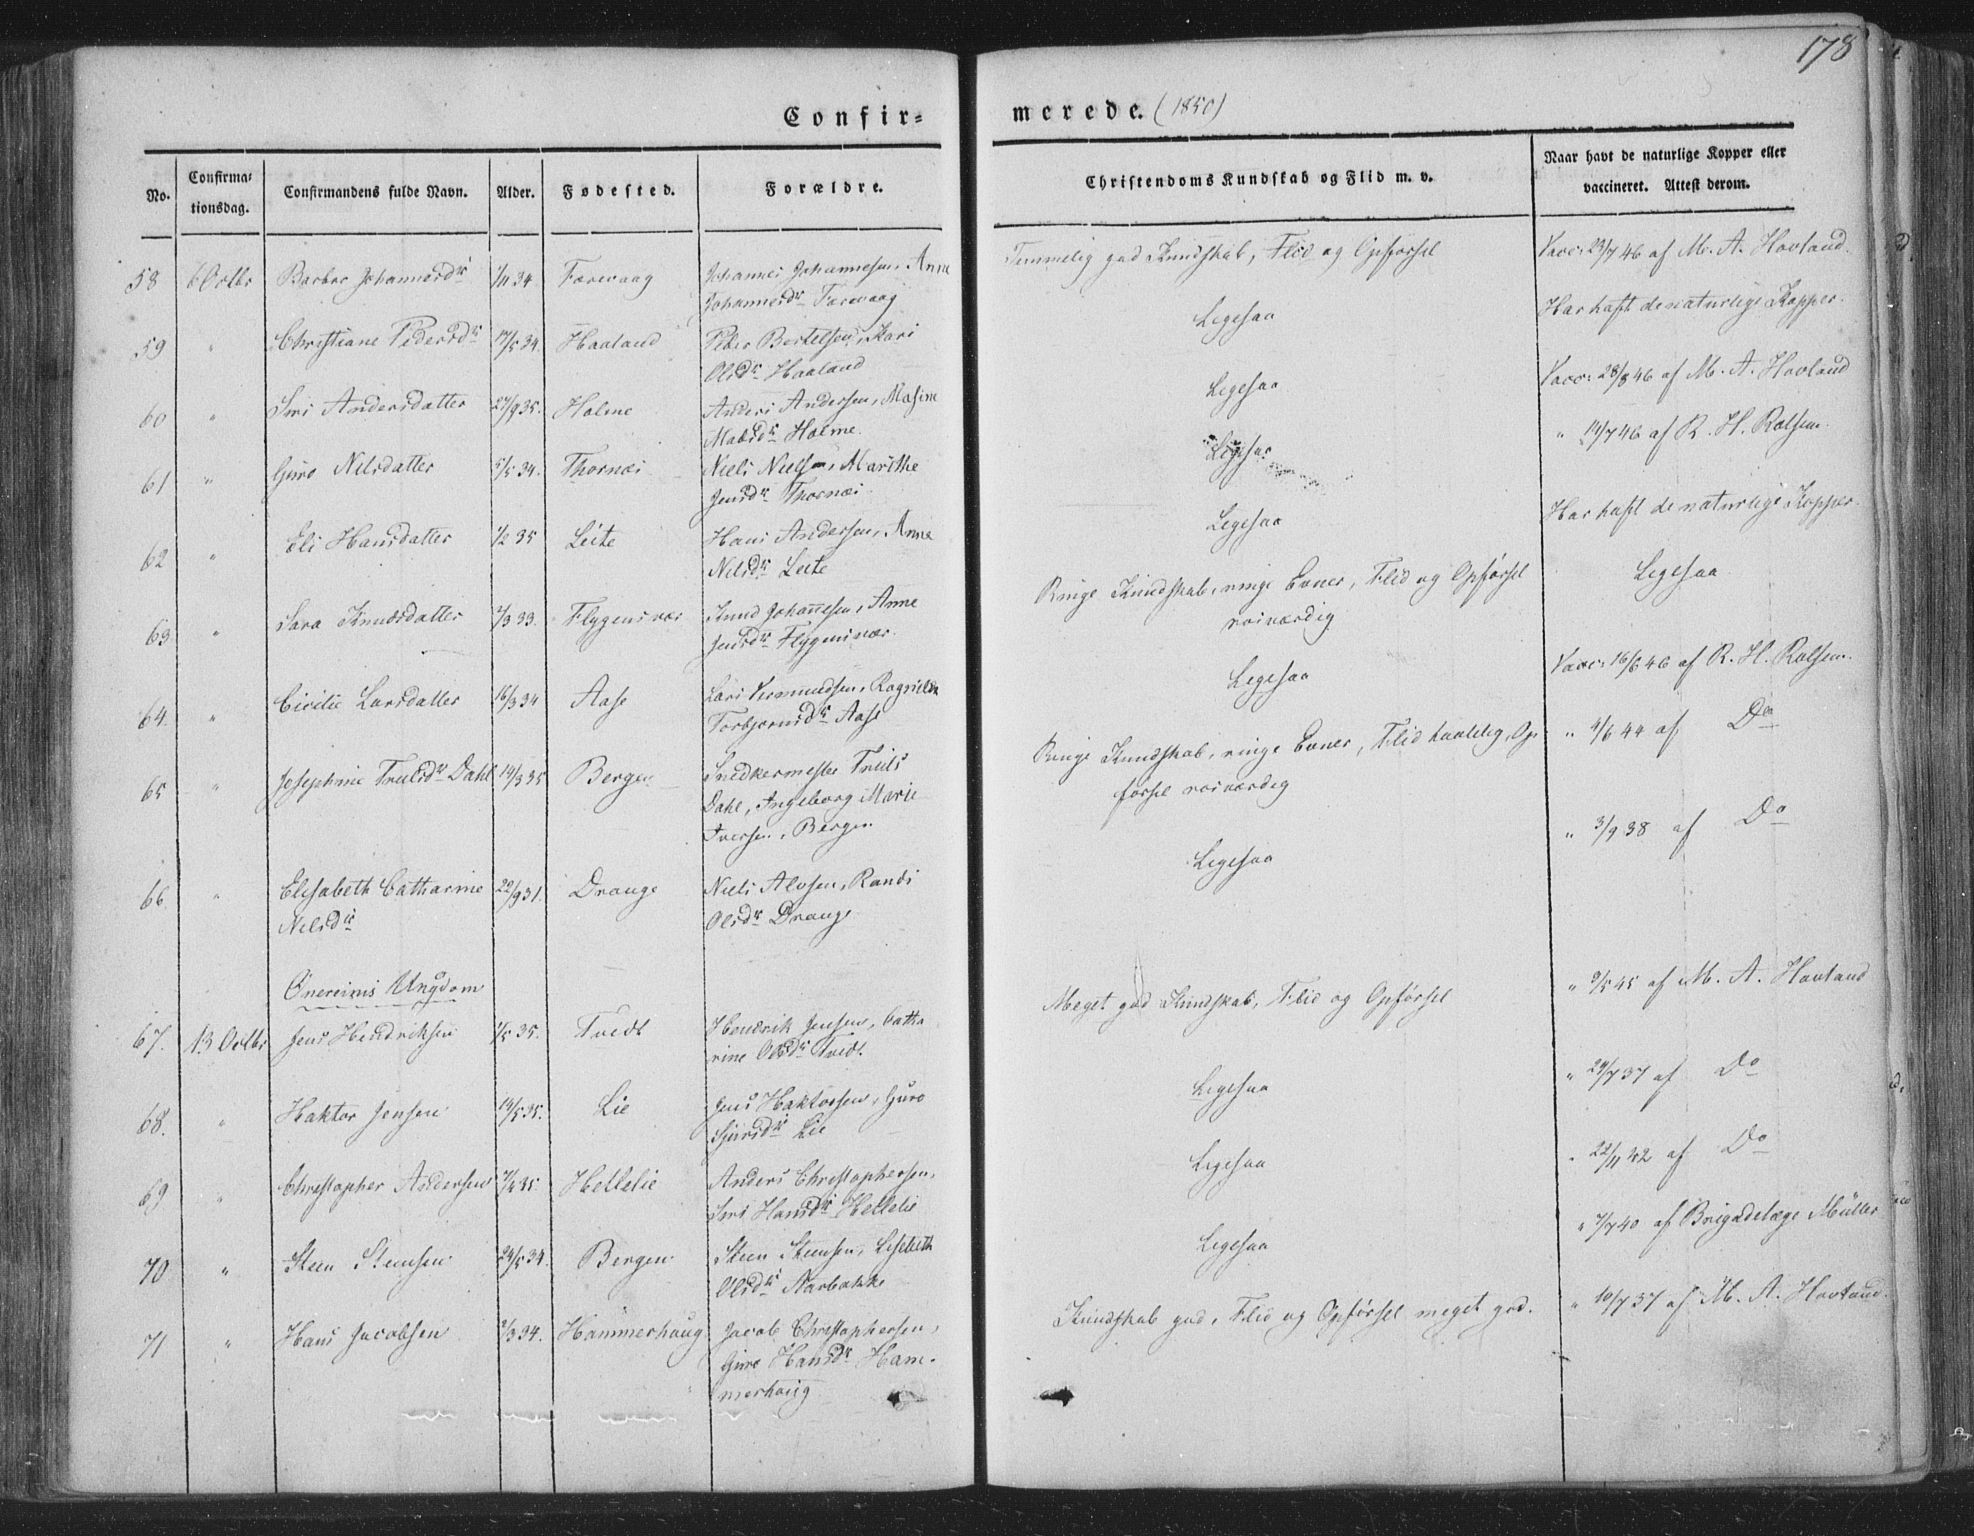 178
Confir= merede. (1850)
No. Confirma= tionsdag. Confirmandens fulde Navn. Alder. Fødested. Forældre. Christendoms Kundskab og Flid m. v. Naar havt de naturlige Kopper eller vaccineret. Attest derom.
58 6 Octbr Barbro Johannesdr 1/11 34 Farevaag Johannes Johannesen, Anne Temmelig god Kundskab, Flid og Opførsel Vacc: 23/7 46 af M. A. Hovland.
Johannesdr Farevaag
59 " Christiane Pedersdr 17/5 34 Haaland Peder Bertelsen, Kari Ligesaa Har haft de naturlige Kopper.
Olsdr Haaland
60 " Siri Andersdatter 27/9 35. Holme Anders Andersen, Massine Ligesaa Vacc: 28/8 46 af M. A. Hovland
Madsdr Holme.
61 " Guro Nilsdatter 5/5 34. Thornæs Niels Nielsen, Marithe Ligesaa " 14/7 46 af R. H. Rolsen.
Jensdr Thornæs
62 " Eli Hansdatter 1/2 35 Leite Hans Andersen, Anne Ligesaa Har haft de naturlige Kopper.
Nilsdr Leite
63 " Sara Knudsdatter 1/3 33. Flygensvær Knud Johannesen, Anne Ringe Kundskab, ringe Evner, Flid og Opførsel Ligesaa
Jensdr Flygensvær. rosværdig
64. " Cicilie Larsdatter 16/3 34 Aase Lars Vermundsen, Ragnilda Ligesaa Vacc: 16/6 46 af R. H. Rolsen.
Torbjørnsdr Aase
65 " Josephine Trulsdr Dahl 14/3 35 Bergen Snedkermester Truls Ringe Kundskab, ringe Evner, Flid taalelig, Op- " 4/6 44 af Do
Dahl, Ingeborg Marie førsel rosværdig
Iversen, Bergen
66 " Elisabeth Catharine 22/9 31. Drange Niels Alvsen, Randi Ligesaa " 3/9 38 af Do
Nilsdr Olsdr Drange
Ønereims Ungdom
67. 13 Octbr Jens Hendriksen 1/5 35. Tvedt Hendrik Jensen, Catha Meget god Kundskab, Flid og Opførsel " 9/5 45 af M. A. Hovland
rine Olsdr Tvedt.
68. " Haktor Jensen 14/5 35. Lie Jens Haktorsen, Guro Ligesaa " 24/7 37 af Do
Sjursdr Lie
69 " Christopher Andersen 7/4 35. Hellelie Anders Christophersen, Ligesaa " 22/11 42 af Do
Siri Hansdr Hellelie
70 " Steen Steensen 24/5 34. Bergen Steen Steensen, Lisebeth Ligesaa " 7/7 40 af Brigadelæge Müller
Olsdr Narbakke
71 " Hans Jacobsen 2/3 34. Hammerhaug Jacob Christophersen, Kundskab god, Flid og Opførsel meget god. " 10/7 37 af M. A. Hovland.
Guro Hansdr Ham-
merhaug